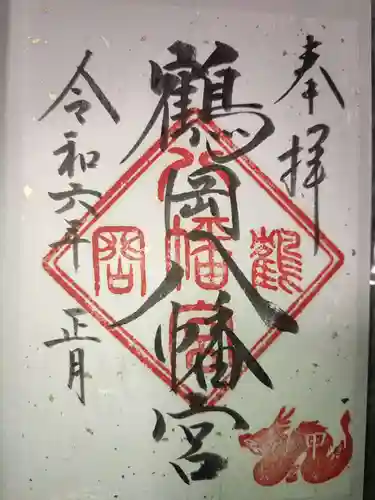 奉拝
鶴岡八幡宮
令和六年 正月
鶴
岡
八幡宮
甲